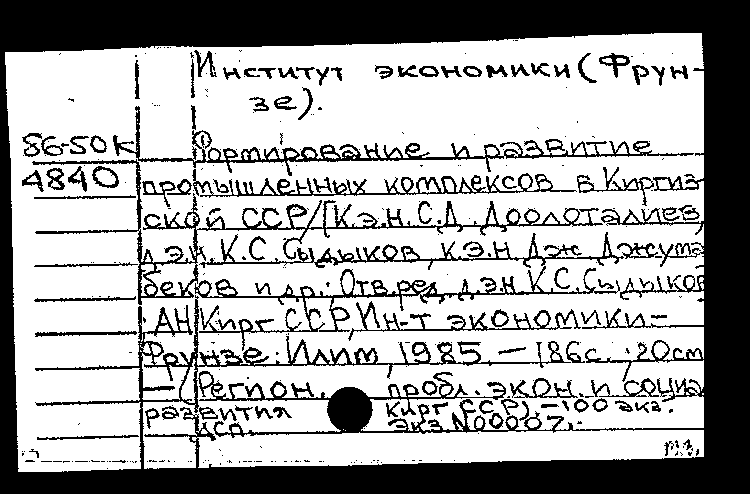 Институт экономики (Фрун-
зе).
86-50К
4840
Формирование и развитие
промышленных комплексов в Киргиз-
ской ССР/[К.э.н. С.Д. Доолоталиев,
д.э.н. К.С. Сыдыков, к.э.н Дж Джума
беков и др.; Отв. ред. д.э.н. К.С. Сыдыков
; АН Кирг ССР, Ин-т экономики.-
Фрунзе: Илим, 1985. — 186 с. ; 20 см
— (Регион. пробл. экон. и социал
развития Кирг ССР). - 100 экз.
ДСП. Экз. N00007.-